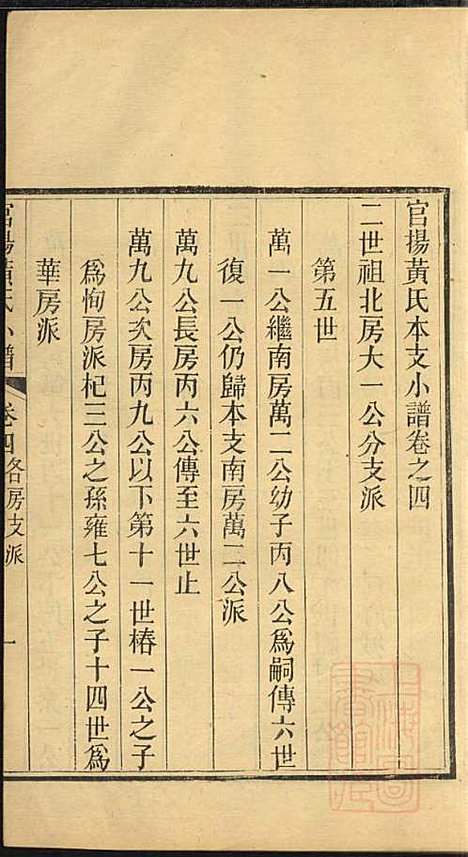 官揚黃氏本支小譜卷之四
二世祖北房大一公分支派
第五世
萬一公繼南房萬二公幼子丙八公爲嗣傳六世
復一公仍歸本支南房萬二公派
萬九公長房丙六公傳至六世止
萬九公次房丙九公以下第十一世椿一公之子
爲恂房派杞三公之孫雍七公之子十四世爲
華房派
官揚黃氏小譜 卷四各房支派 一